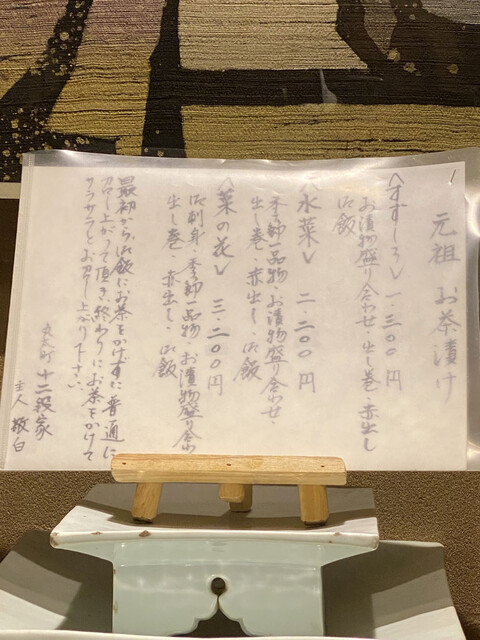 元祖 お茶漬け
〈すずしろ〉 一、三〇〇 円
お漬物盛り合わせ・出し巻・赤出し
御飯
〈水菜〉 二、二〇〇 円
季節一品物・お漬物盛り合わせ・
出し巻・赤出し・御飯
〈菜の花〉 三、二〇〇 円
御刺身・季節一品物・お漬物盛り合わせ
出し巻・赤出し・御飯
最初から御飯にお茶をかけずに普通に
召し上がって頂き、終わりにお茶をかけて
サラサラとお召し上がり下さい。
丸太町 十二段家
主人 敬白